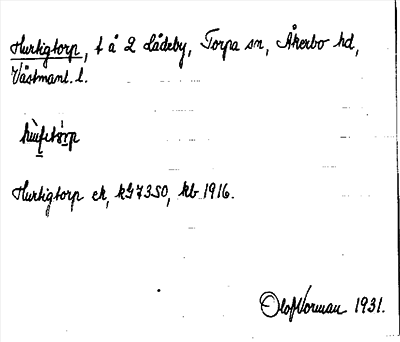 Hurtigtorp, t å 2 Lådeby, Torpa sn, Åkerbo hd,
Västmanl. l.
Hurtigtorp ek, kG7350, kb 1916.
Olof Norman 1931.